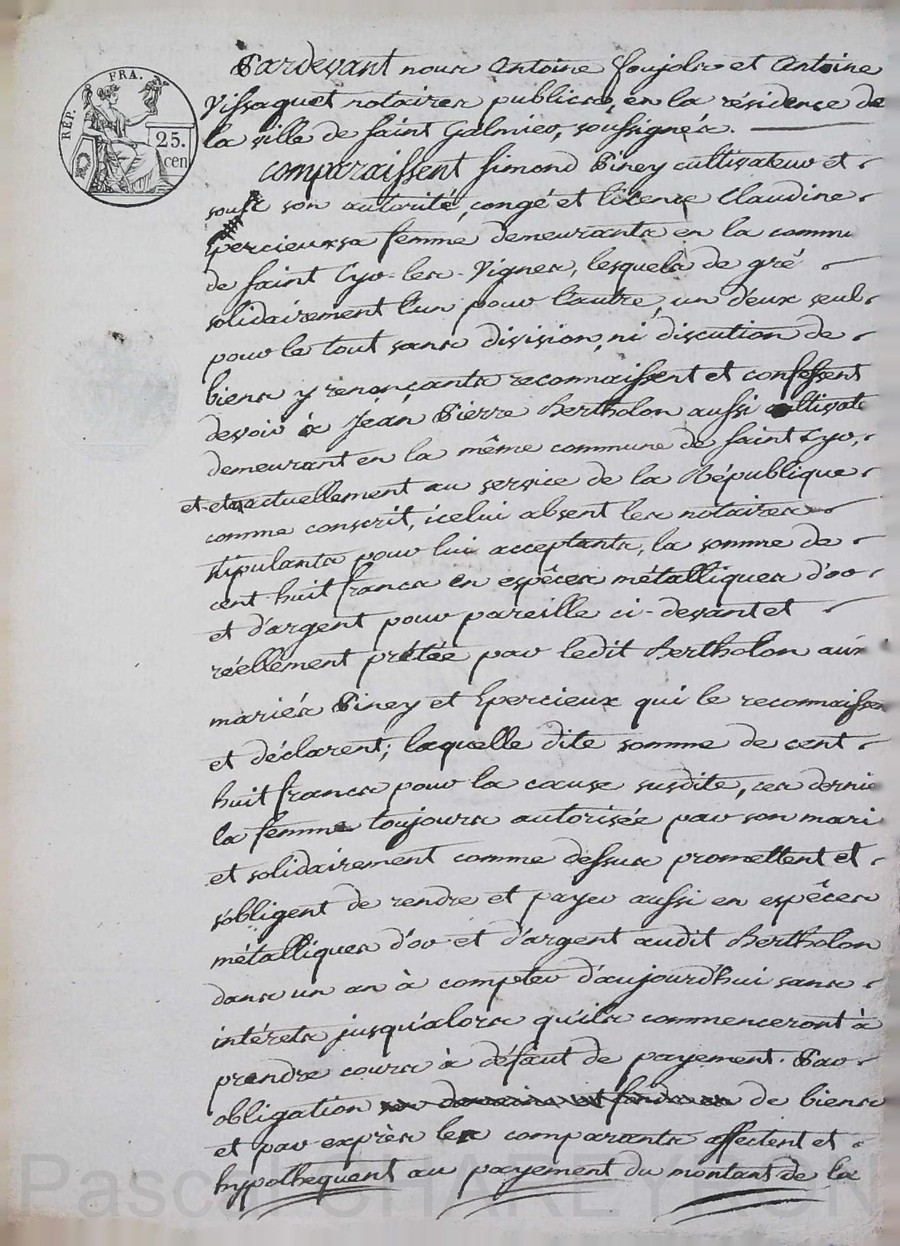 RÉP. FRA.
25.
cen
Pardevant nous Antoine Soujols et Antoine
Vissaguet notaires publics, en la résidence de
la ville de Saint Galmier, soussignés.
comparaissent Simond Piney cultivateur et
sous son autorité, congé et licence Claudine
Epercieux sa femme demeurants en la commu
de Saint Cyr-les-Vignes, lesquels de gré
solidairement l'un pour l'autre, un d'eux seul
pour le tout sans division, ni discution de
biens y renonçants reconnaissent et confessent
devoir à Jean Pierre Bertholon aussi cultivat
demeurant en la même commune de Saint Cyr,
et actuellement au service de la République
comme conscrit, icelui absent les notaires
stipulants pour lui acceptants, la somme de
cent huit francs en espêces métalliques d'or
et d'argent pour pareille ci-devant et
réellement prêtée par ledit Bertholon aux
mariés Piney et Epercieux qui le reconnaissen
et déclarent; laquelle dite somme de cent
huit francs pour la cause susdite, ces dernie
la femme toujours autorisée par son mari
et solidairement comme dessus promettent et
s'obligent de rendre et payer aussi en espêces
métalliques d'or et d'argent audit Bertholon
dans un an à compter d'aujourd'hui sans
intérets jusqu'alors qu'ils commenceront à
prendre cours à défaut de payement. Par
obligation de biens
et par exprès les comparants affectent et
hypothequent au payement du montant de la
Pascal CHAREYRON